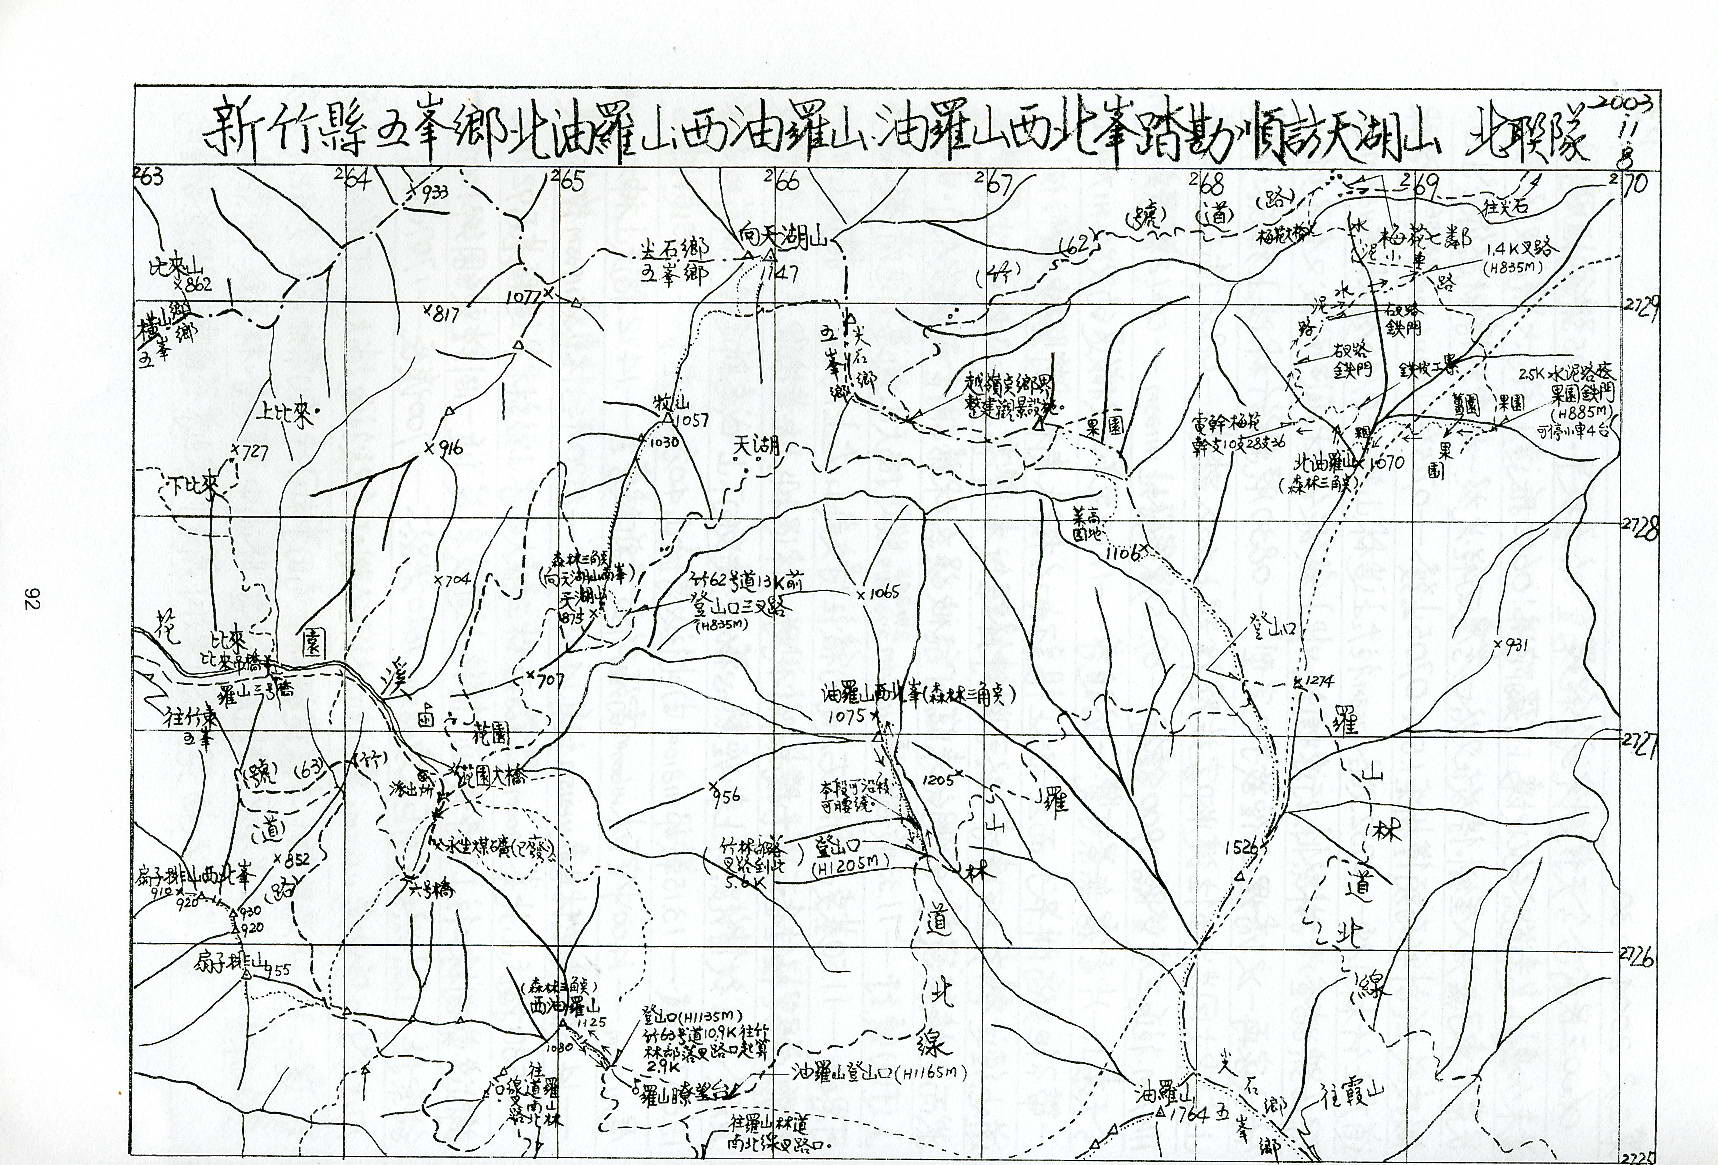 新竹縣五峯鄉北油羅山.西油羅山.油羅山西北峯踏勘順訪天湖山 北聯隊
2003.11.8
263
264
265
266
267
268
269
270
933
向天湖山
1147
尖石鄉
五峯鄉
(62)
(號)
(道)
(路)
(竹)
梅花大橋
往尖石
梅花七鄰
1.4K叉路
(H835M)
水泥小車路
水泥路
右叉路
鉄門
右叉路
鉄門
2729
比來山
862
橫山鄉
五峯鄉
1077
817
五峯鄉
尖石鄉
越嶺点鄉界
整建觀景設施。
果園
鉄皮工寮
2.5K水泥路終
果園鉄門
(H885M)
可停小車4台
果園
果園
電幹梅花
幹支10支28支36
北油羅山
1070
(森林三角点)
上比來
727
916
1057
1030
天湖
下比來
2728
高地菜園
1106
704
森林三角点
(向天湖山南峯)
天湖山
875
竹62号道13K前
登山口三叉路
(H835M)
1065
登山口
931
花
園
溪
比來
比來吊橋
羅山三号橋
707
1274
油羅山西北峯(森林三角点)
1075
往竹東
五峯
花園
2727
(號)
(63)
(竹)
(道)
(路)
派出所
花園大橋
956
1205
本段可沿稜
可腰繞。
羅
山
林
道
北
線
羅
山
林
道
北
線
852
永生煤礦(已廢)
(竹林部落
叉路到此
5.6K)
登山口
(H1205M)
1526
扇子排山西北峯
912
920
930
920
六号橋
2726
扇子排山
955
(森林三角点)
西油羅山
1125
1030
登山口(H1135M)
竹63号道10.9K往竹
林部落叉路口起算
2.9K
油羅山登山口(H1165M)
羅山瞭望台
往羅山林道南北線叉路口
往羅山林道
南北線叉路口。
油羅山
1764
尖石鄉
五峯鄉
往霞山
2725
92